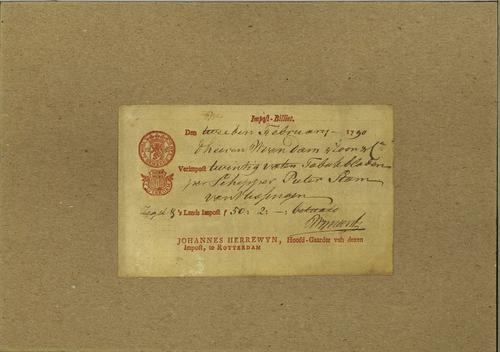 Impost-Billiet.
Den tweeden February 1790
d'heeren Wesendam Zoon & Cᵒ
Verimpost twintig vaten Tabakbladen
per Schipper Pieter Stam
van Vlissingen
Zegel & 's Lands Impost f 50: 2: –: betaald
JOHANNES HERREWYN, Hoofd-Gaarder van dezen
Impost, te ROTTERDAM